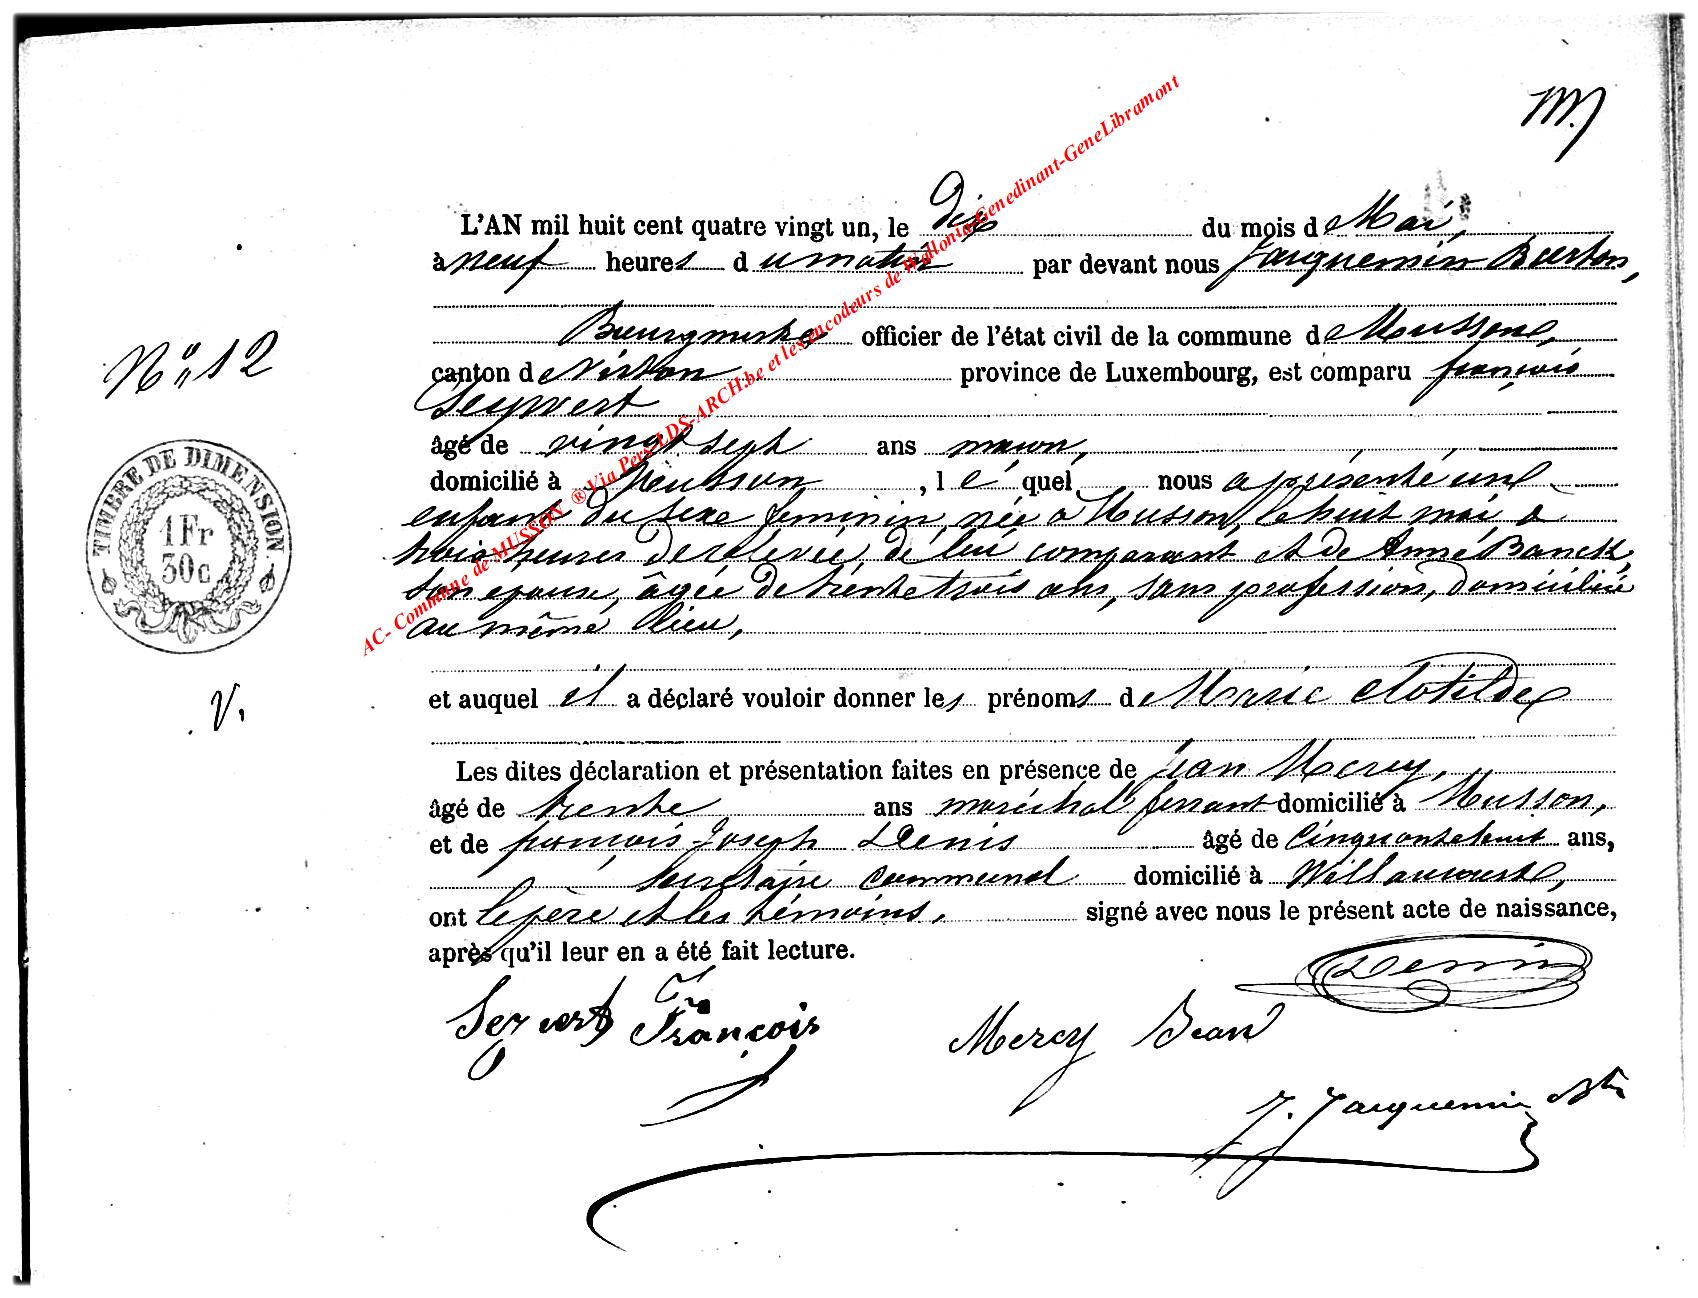 M.J
L'AN mil huit cent quatre vingt un, le dix du mois d e Mai,
à neuf heures d u matin par devant nous Jacquemin Buerton,
Bourgmestre officier de l'état civil de la commune d e Musson,
N° 12
canton d e Virton province de Luxembourg, est comparu françois
Seyvert
âgé de vingt sept ans maçon,
domicilié à Musson, l e quel nous a présenté une
enfant du sexe féminin, née à Musson, le huit mai à
trois heures de relevée, de lui comparant et de Anne
son épouse, âgée de trente trois ans, sans profession, domiciliée
au même lieu,
TIMBRE DE DIMENSION
1 Fr
30c
V.
et auquel il a déclaré vouloir donner les prénoms d e Marie Clotilde
Les dites déclaration et présentation faites en présence de Jean Mercy,
âgé de trente ans maréchal ferrant domicilié à Musson,
et de françois Joseph Denis âgé de Cinquante huit ans,
Secrétaire communal domicilié à Willancourt,
ont le père et les témoins, signé avec nous le présent acte de naissance,
après qu'il leur en a été fait lecture.
Denis
Seyvert François
Mercy Jean
J. Jacquemin Btn
AC- Commune de MUSSON ® Via Pers-LDS-ARCH.be et les encodeurs de Wallonia-Genedinant-GeneLibramont